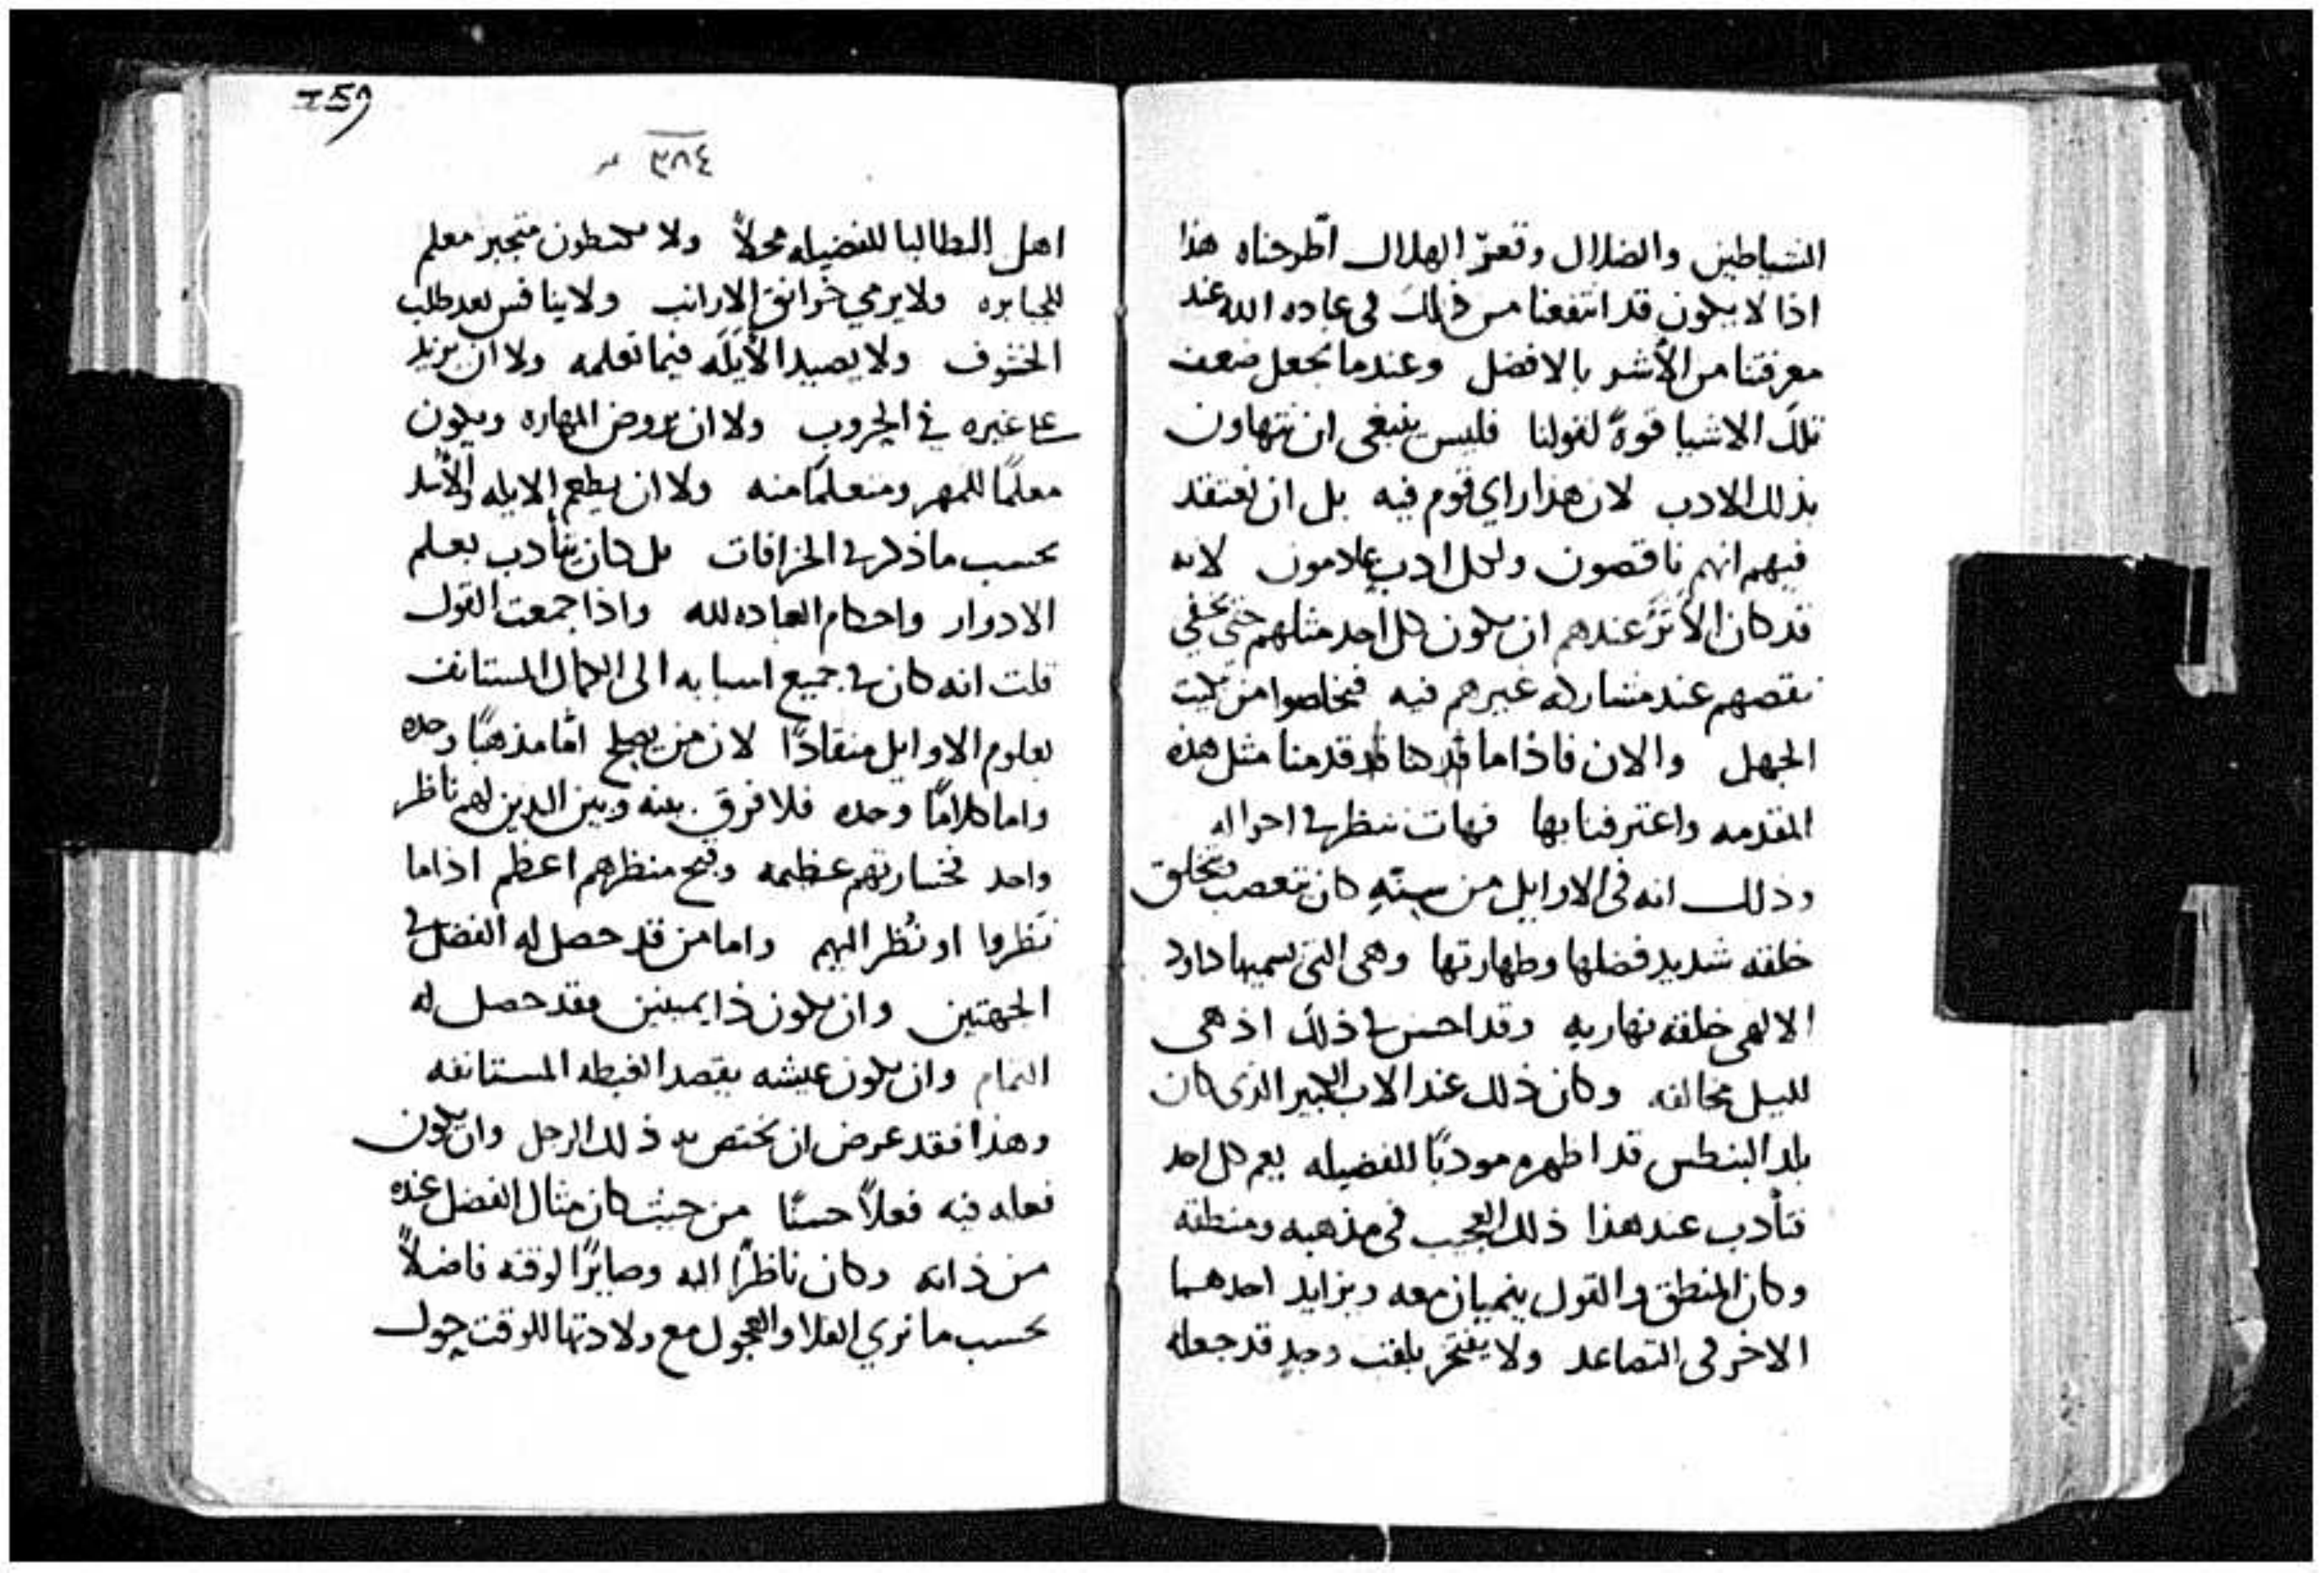 الشياطين والضلال وقعر الهلاك اطّرحناه هذا
اذا لا يكون قد انتفعنا من ذلك في عباده الله عند
معرفتنا من الأشر بالافضل وعندما نجعل ضعف
تلك الاشيا قوةً لقولنا فليس ينبغي ان نتهاون
بذلك الادب لان هذا راي قوم فيه بل ان نعتقد
فيهم انهم ناقصون ولكل ادب عادمون لانه
قد كان الأثر عندهم ان يكون كل احد مثلهم حتي يخفي
نقصهم عند مشاركه غيرهم فيه فيخلصوا من تبكيت
الجهل والان فاذا ما قد كنا قد قدمنا مثل هذه
المقدمه واعترفنا بها فهات ننظر في احواله
وذلك انه في الاوايل من سنّه كان تعصب وتخلق
خلقه شديد فضلها وطهارتها وهي التي يسميها داود
الالهي خلقه نهاريه وقد احسن في ذلك اذ هي
لليل مخالفه وكان ذلك عند الاب الكبير الذي كان
بلد البنطس قد اظهره مودبًا للفضيله يعم كل احد
فتأدب عند هذا ذلك العجيب في مذهبه ومنطقه
وكان المنطق والقول ينميان معه ويزايد احدهما
الاخر في التصاعد ولا يفتخر بلقب وجد قد جعله
٣٨٤
259
اهل الطالبا للفضيله محلاً ولا متجبر معلم
للجبابره ولا يرمي خرانق الارانب ولا ينافس بعد طلب
الخشوف ولا يصيد الأيّله فيما تعلمه ولا ان يزيد
على غيره في الحروب ولا ان يروض المهاره ويكون
معلمًا للمهر ومتعلمًا منه ولا ان يطعم الايله والأسد
بحسب ما ذكر في الخرافات بل كان يتأدب بعلم
الادوار واحكام العباده لله واذا جمعت القول
قلت انه كان في جميع اسبابه الى الكمال المستانف
بعلوم الاوايل منقادًا لان من يصلح امّا مذهبًا وحده
واما كلامًا وحده فلا فرق بينه وبين الذين لهم ناظر
واحد فخسارتهم عظيمه وقبح منظرهم اعظم اذا ما
نَظروا او نُظر اليهم واما من قد حصل له الفضل في
الجهتين وان يكون ذا يمينين فقد حصل له
التمام وان يكون عيشه بقصد الغبطه المستانفه
وهذا فقد عرض ان يختص به ذلك الرجل وان يكون
فعله فيه فعلاً حسنًا من حيث كان مثال الفضل عنده
من ذاته وكان ناظرًا اليه وصايرًا لوقته فاضلاً
بحسب ما نري الفلا والعجول مع ولادتها للوقت حول